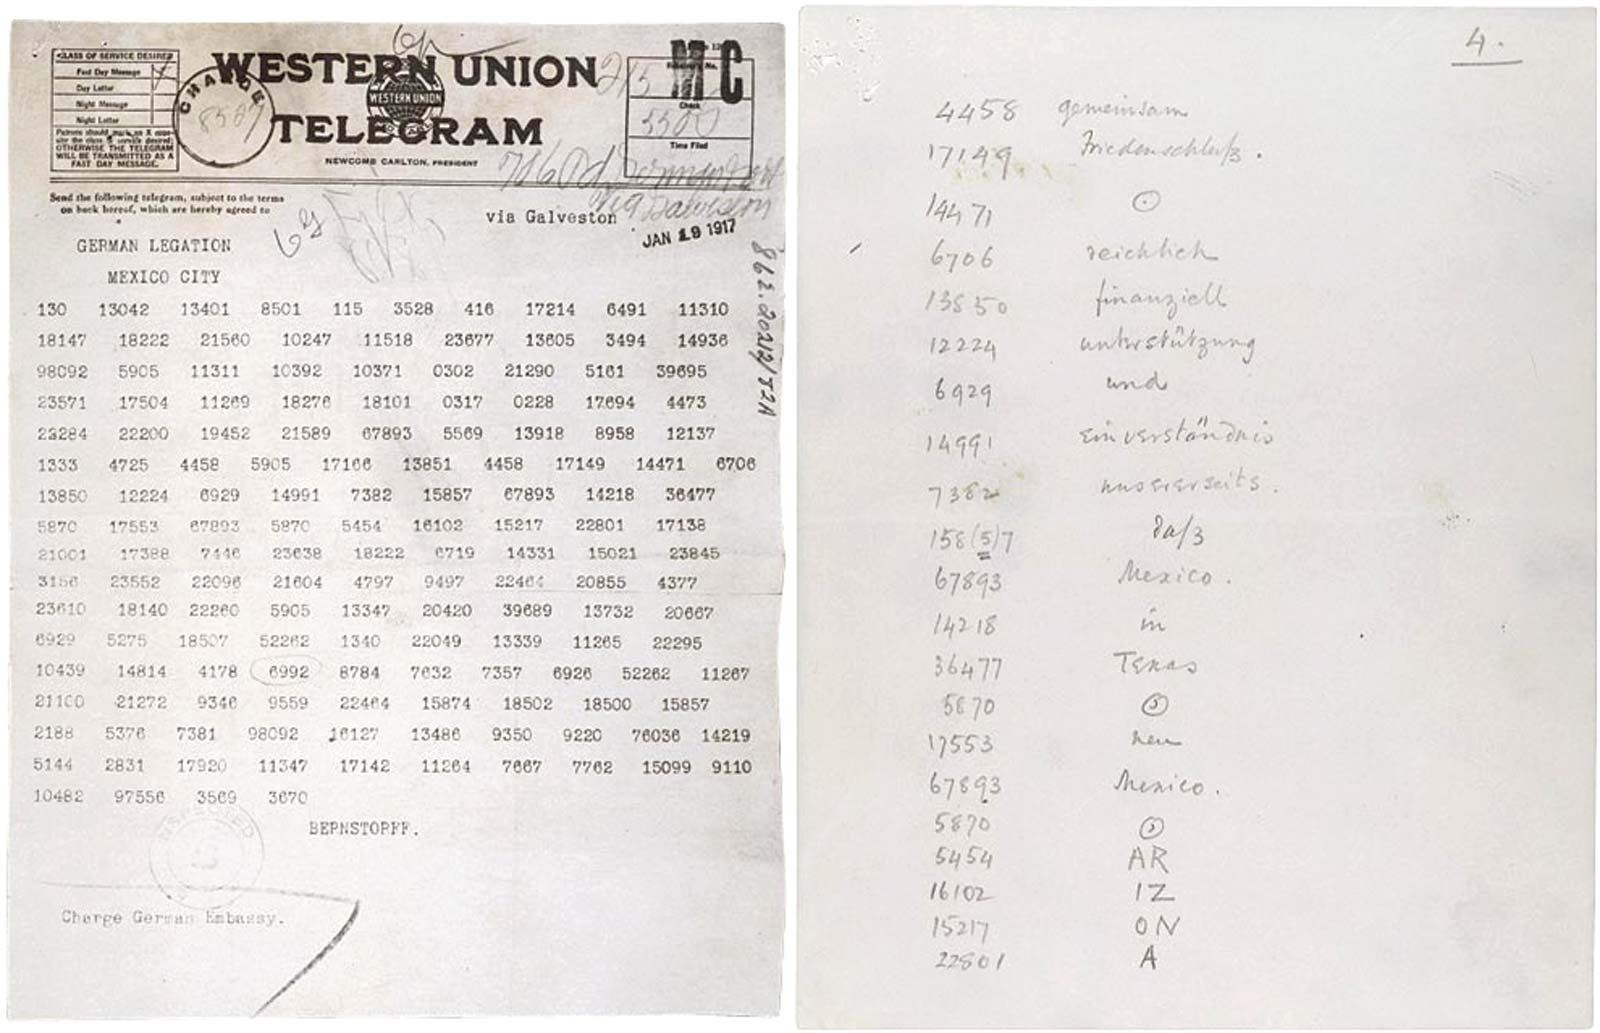 CLASS OF SERVICE DESIRED
Fast Day Message
Day Letter
Night Message
Night Letter
Patrons should mark an X oppo-
site the class of service desired;
OTHERWISE THE TELEGRAM
WILL BE TRANSMITTED AS A
FAST DAY MESSAGE.
CHARGE
WESTERN UNION
WESTERN UNION
TELEGRAM
NEWCOMB CARLTON, PRESIDENT
Check
Time Filed
Send the following telegram, subject to the terms
on back hereof, which are hereby agreed to
via Galveston
JAN 19 1917
GERMAN LEGATION
MEXICO CITY
862.20212/82A
130 13042 13401 8501 115 3528 416 17214 6491 11310
18147 18222 21560 10247 11518 23677 13605 3494 14936
98092 5905 11311 10392 10371 0302 21290 5161 39695
23571 17504 11269 18276 18101 0317 0228 17694 4473
22284 22200 19452 21589 67893 5569 13918 8958 12137
1333 4725 4458 5905 17166 13851 4458 17149 14471 6706
13850 12224 6929 14991 7382 15857 67893 14218 36477
5870 17553 67893 5870 5454 16102 15217 22801 17138
21001 17388 7446 23638 18222 6719 14331 15021 23845
3156 23552 22096 21604 4797 9497 22464 20855 4377
23610 18140 22260 5905 13347 20420 39689 13732 20667
6929 5275 18507 52262 1340 22049 13339 11265 22295
10439 14814 4178 6992 8784 7632 7357 6926 52262 11267
21100 21272 9346 9559 22464 15874 18502 18500 15857
2188 5376 7381 98092 16127 13486 9350 9220 76036 14219
5144 2831 17920 11347 17142 11264 7667 7762 15099 9110
10482 97556 3569 3670
BERNSTORFF.
Charge German Embassy.
4.
4458 gemeinsam
17149 Friedenschluß.
14471 .
6706 reichlich
13850 finanziell
12224 unterstützung
6929 und
14991 einverständnis
7382 unsererseits.
158(5)7 daß
67893 Mexico.
14218 in
36477 Texas
5870 ,
17553 neu
67893 Mexico.
5870 ,
5454 AR
16102 IZ
15217 ON
22801 A